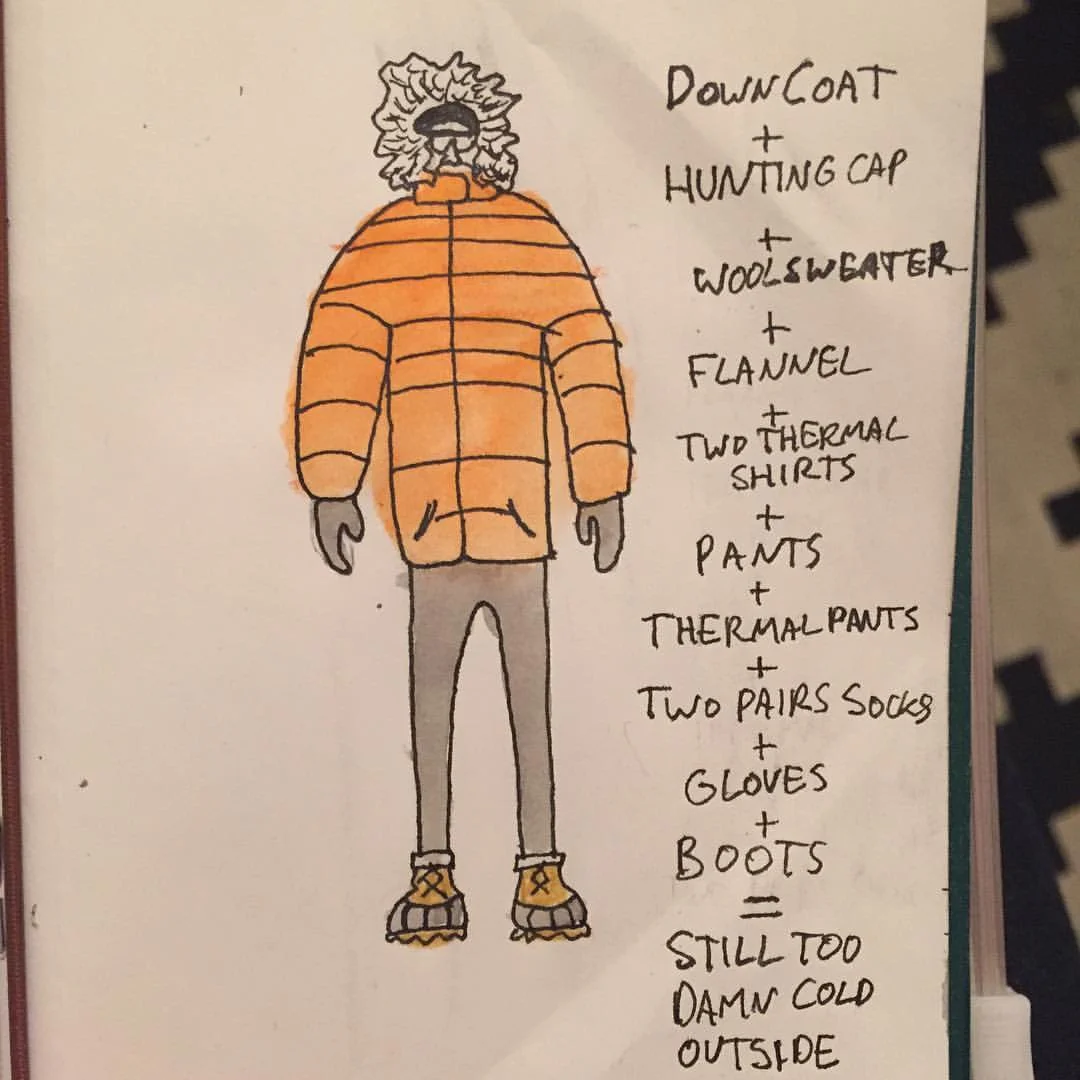 DOWN COAT
+
HUNTING CAP
+
WOOL SWEATER
+
FLANNEL
+
TWO THERMAL
SHIRTS
+
PANTS
+
THERMAL PANTS
+
TWO PAIRS SOCKS
+
GLOVES
+
BOOTS
=
STILL TOO
DAMN COLD
OUTSIDE